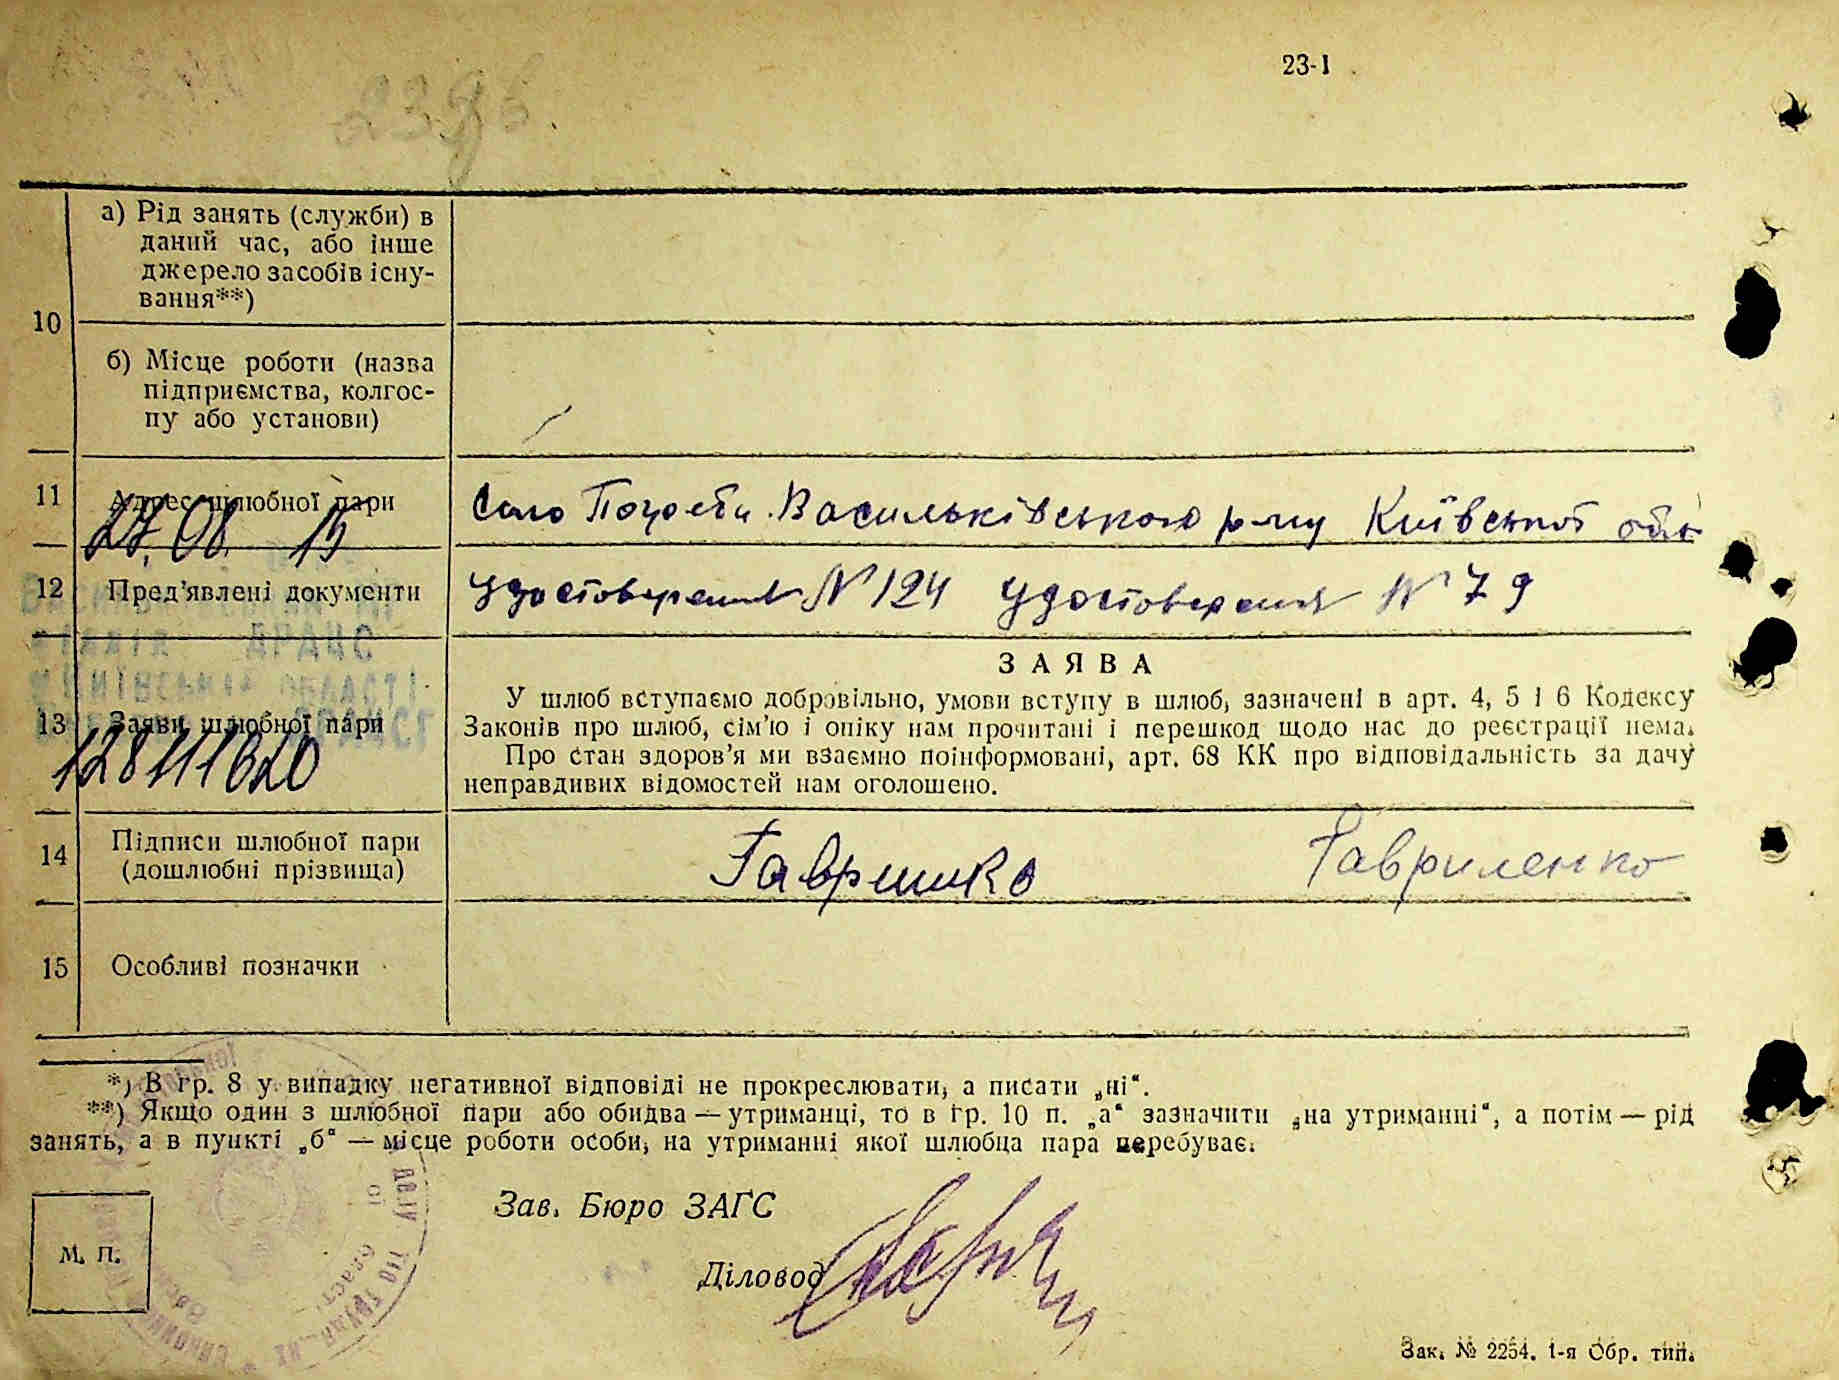 23-І
10
а) Рід занять (служби) в
даний час, або інше
джерело засобів існу-
вання**)
б) Місце роботи (назва
підприємства, колгос-
пу або установи)
11
Адрес шлюбної пари
Село Погреби Васильківського р-ну Київської обл
27.08. 15
12
Пред'явлені документи
Удостоверения № 124 Удостоверения № 79
13
Заяви шлюбної пари
ЗАЯВА
У шлюб вступаємо добровільно, умови вступу в шлюб, зазначені в арт. 4, 5 і 6 Кодексу
Законів про шлюб, сім'ю і опіку нам прочитані і перешкод щодо нас до реєстрації нема.
Про стан здоров'я ми взаємно поінформовані, арт. 68 КК про відповідальність за дачу
неправдивих відомостей нам оголошено.
14
Підписи шлюбної пари
(дошлюбні прізвища)
Гавриленко
15
Особливі позначки
*) В гр. 8 у випадку негативної відповіді не прокреслювати, а писати „ні“.
**) Якщо один з шлюбної пари або обидва — утриманці, то в гр. 10 п. „а“ зазначити „на утриманні“, а потім — рід
занять, а в пункті „б“ — місце роботи особи, на утриманні якої шлюбца пара перебуває.
Зав. Бюро ЗАГС
М. П.
Діловод
Зак. № 2254. 1-я Обр. тип.